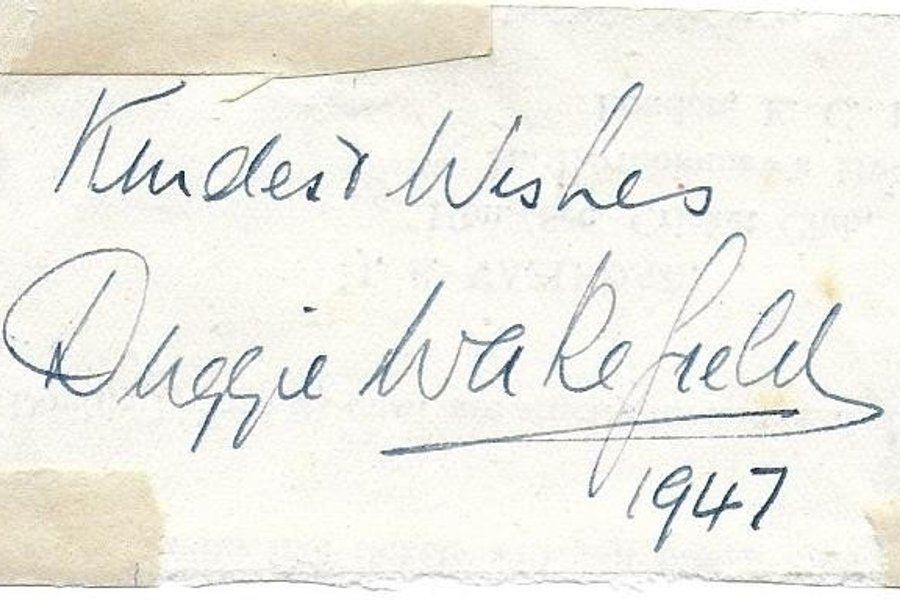 Kindest Wishes
Duggie Wakefield
1947